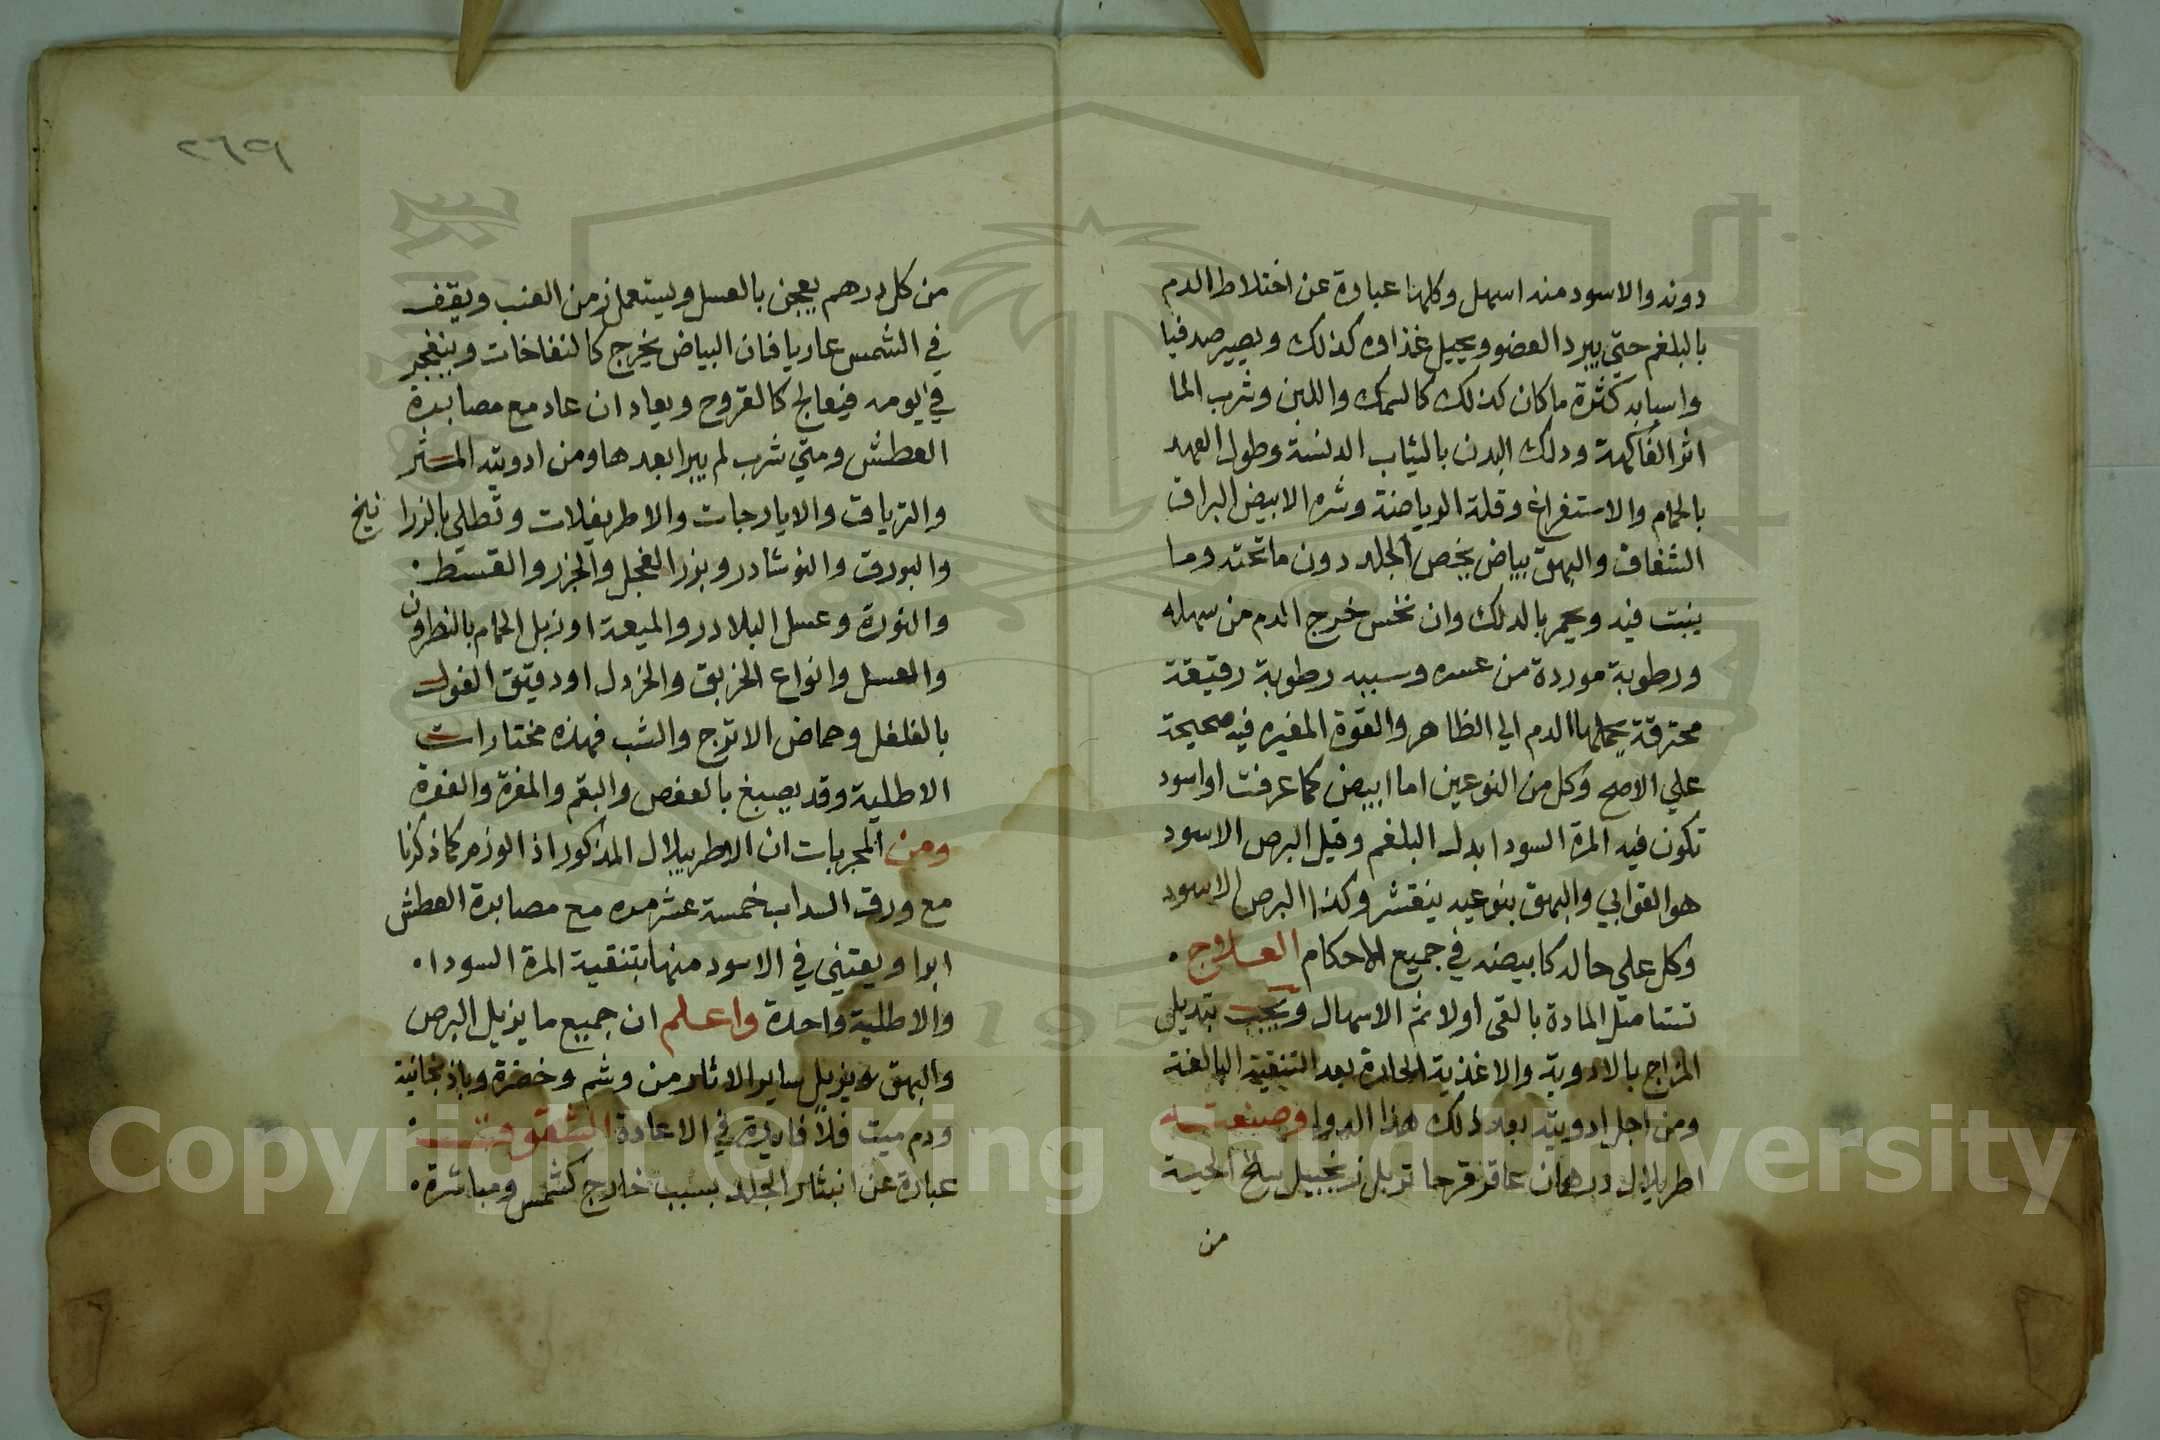 دونه والاسود منه اسهل وكلها عبارة عن اختلاط الدم
بالبلغم حتي يبرد العضو ويحيل غذاوه كذلك ويصير صدفيا
واسبابه كثرة ما كان كذلك كالسمك واللبن وشرب الما
اثر الفاكهة ودلك البدن بالثياب الدنسة وطول العهد
بالحمام والاستفراغ وقلة الرياضة وشره الابيض البراق
الشفاف والبهق بياض يخص الجلد دون ما تحته وما
ينبت فيه ويحمر بالدلك وان نخس خرج الدم من سهله
ورطوبة موردة من عسره وسببه رطوبة رقيقة
محترقة يحملها الدم الي الظاهر والقوة المغيره فيه صحيحة
علي الاصح وكل من النوعين اما ابيض كما عرفت او اسود
تكون فيه المرة السودا بدل البلغم وقيل البرص الاسود
هو القوابي والبهق بنوعيه ينقشر وكذا البرص الاسود
وكل علي حاله كابيضه في جميع الاحكام العلاج .
تستاصل المادة بالقى اولا ثم الاسهال ويجب تبديل
المزاج بالادوية والاغذية الحارة بعد التنقية البالغة
ومن اجل ادويته بعد ذلك هذا الدوا وصنعته
اطريلال درهمان عاقر قرحا تربل زنجبيل سلخ الحية
من
٢٦٢٩
من كل درهم يعجن بالعسل ويستعمل زمن العنب ويقف
في الشمس عاريا فان البياض يخرج كالنفاخات وينفجر
في يومه فيعالج كالقروح ويعاد ان عاد مع مصابرة
العطش ومتي شرب لم يبرا بعدها ومن ادويته
والترياق والايارجات والاطريفلات وتطلي بالزرانيخ
والبورق والنوشادر وبزر الفجل والجزر والقسط .
والنورة وعسل البلادر والميعة او زبل الحمام بالنطرون
والعسل وانواع الخربق والخردل او دقيق الفول
بالفلفل وحماض الاترج والشب فهذه مختارات
الاطلية وقد يصبغ بالعفص والبقم والمغرة والفوة
ومن المجربات ان الاطريلال المذكور اذا لوزم كما ذكرنا
مع ورق السداب خمسة عشر مره مع مصابرة العطش
ابرا ويعتني في الاسود منها بتنقية المرة السودا .
والاطلية واحدة واعلم ان جميع ما يزيل البرص
والبهق يزيل ساير الاثار من وشم وخضرة وباذنجانية
ودم ميت فلا فايدة في الاعادة الشقوق .
عبارة عن انتثار الجلد بسبب خارج كشمس ومباشرة .
Copyright © King Saud University
1957